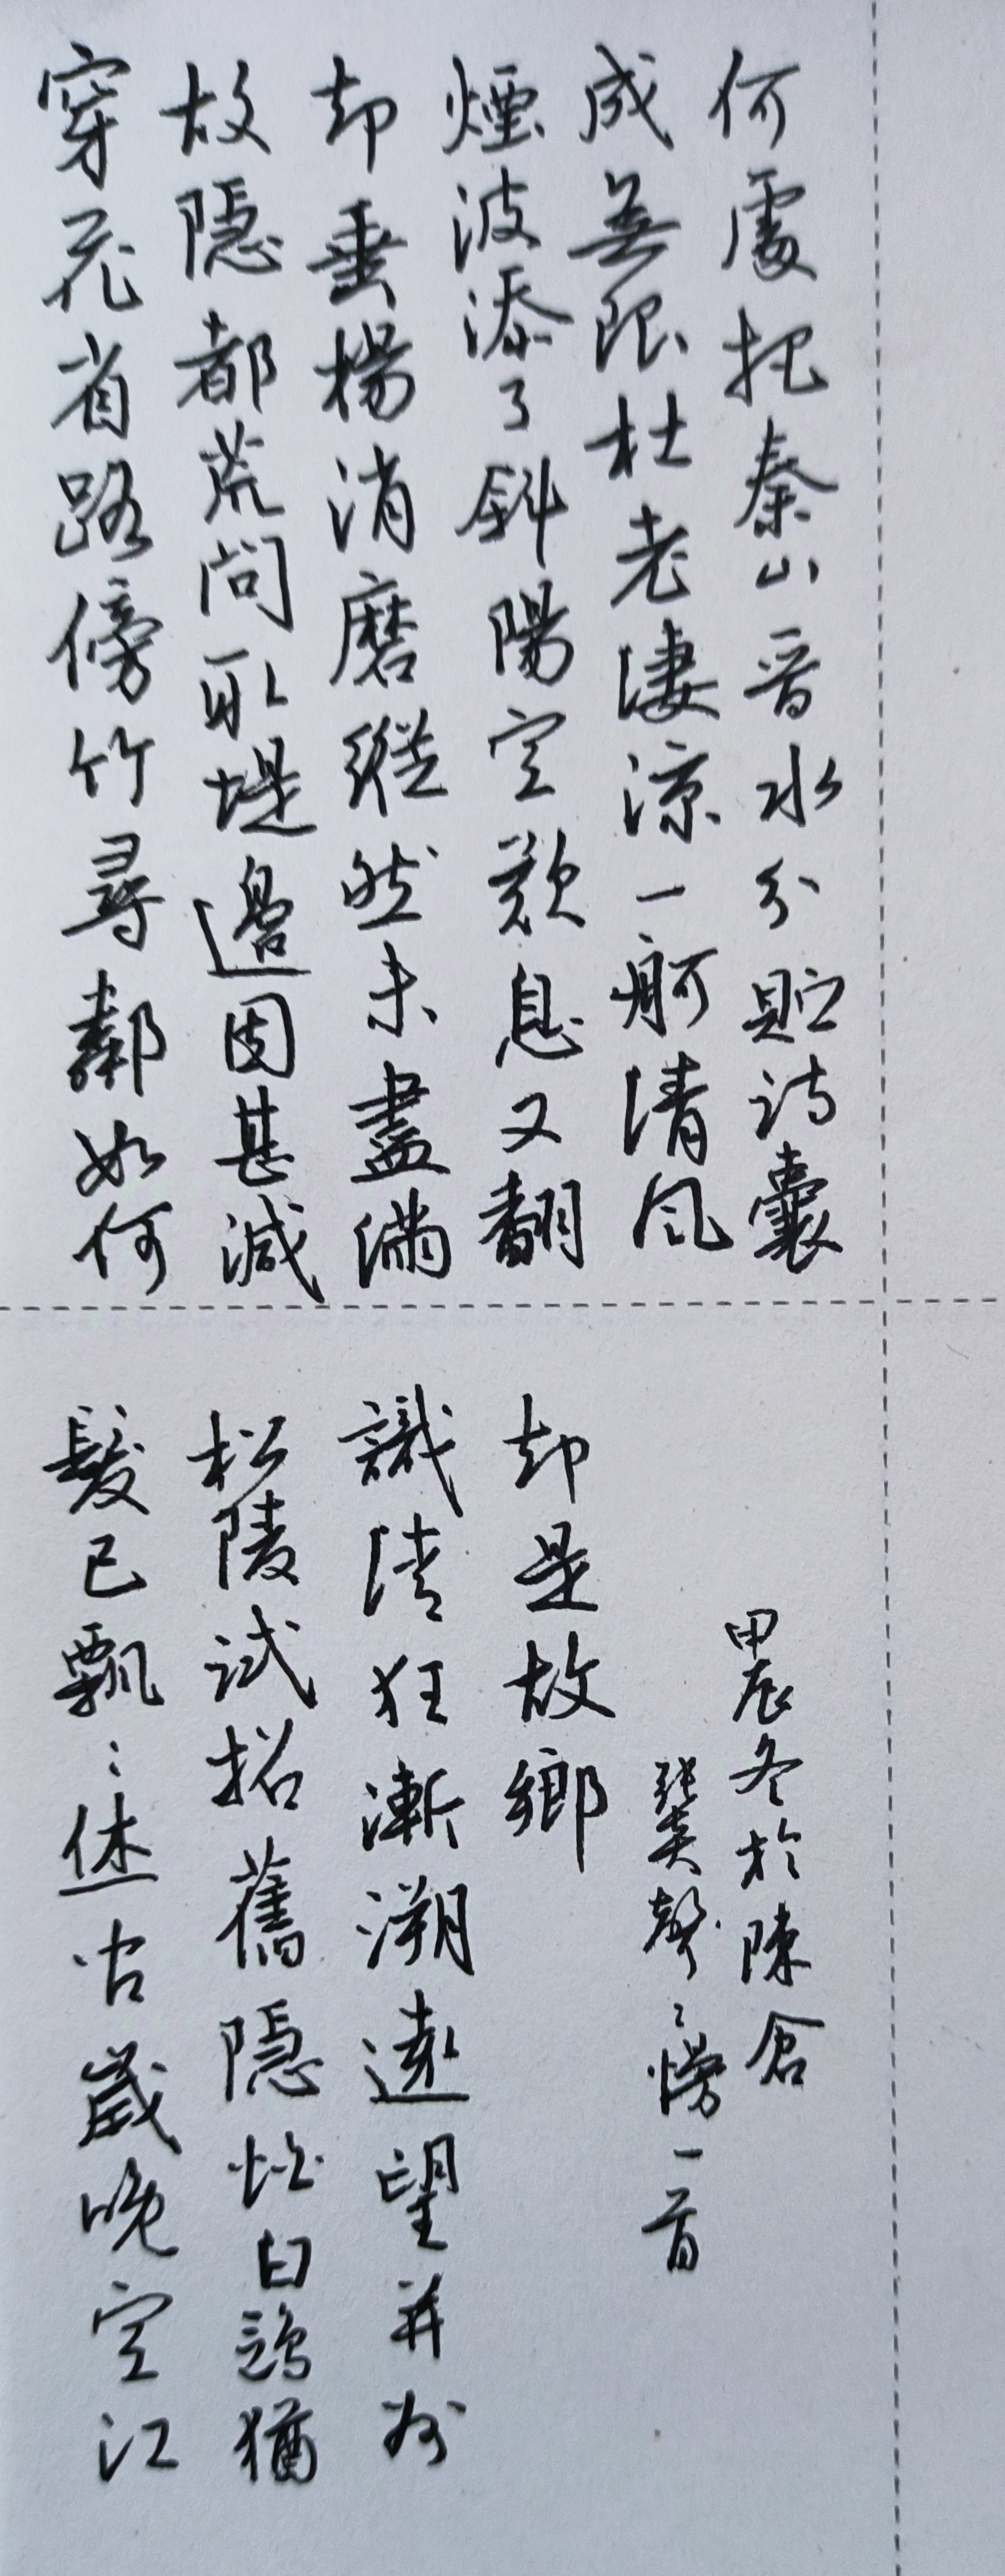 穿花省路傍竹尋鄰如何
故隱都荒問取堤邊因甚減
却垂楊消磨縱然未盡滿
煙波添了斜陽空歎息又翻
成無限杜老淒涼一舸清風
何處把秦山晉水分貯詩囊
髮已飄〻休問歲晚空江
松陵試招舊隱怕白鷗猶
識清狂漸溯遠望并州
却是故鄉
張炎聲〻慢一首
甲辰冬於陳倉